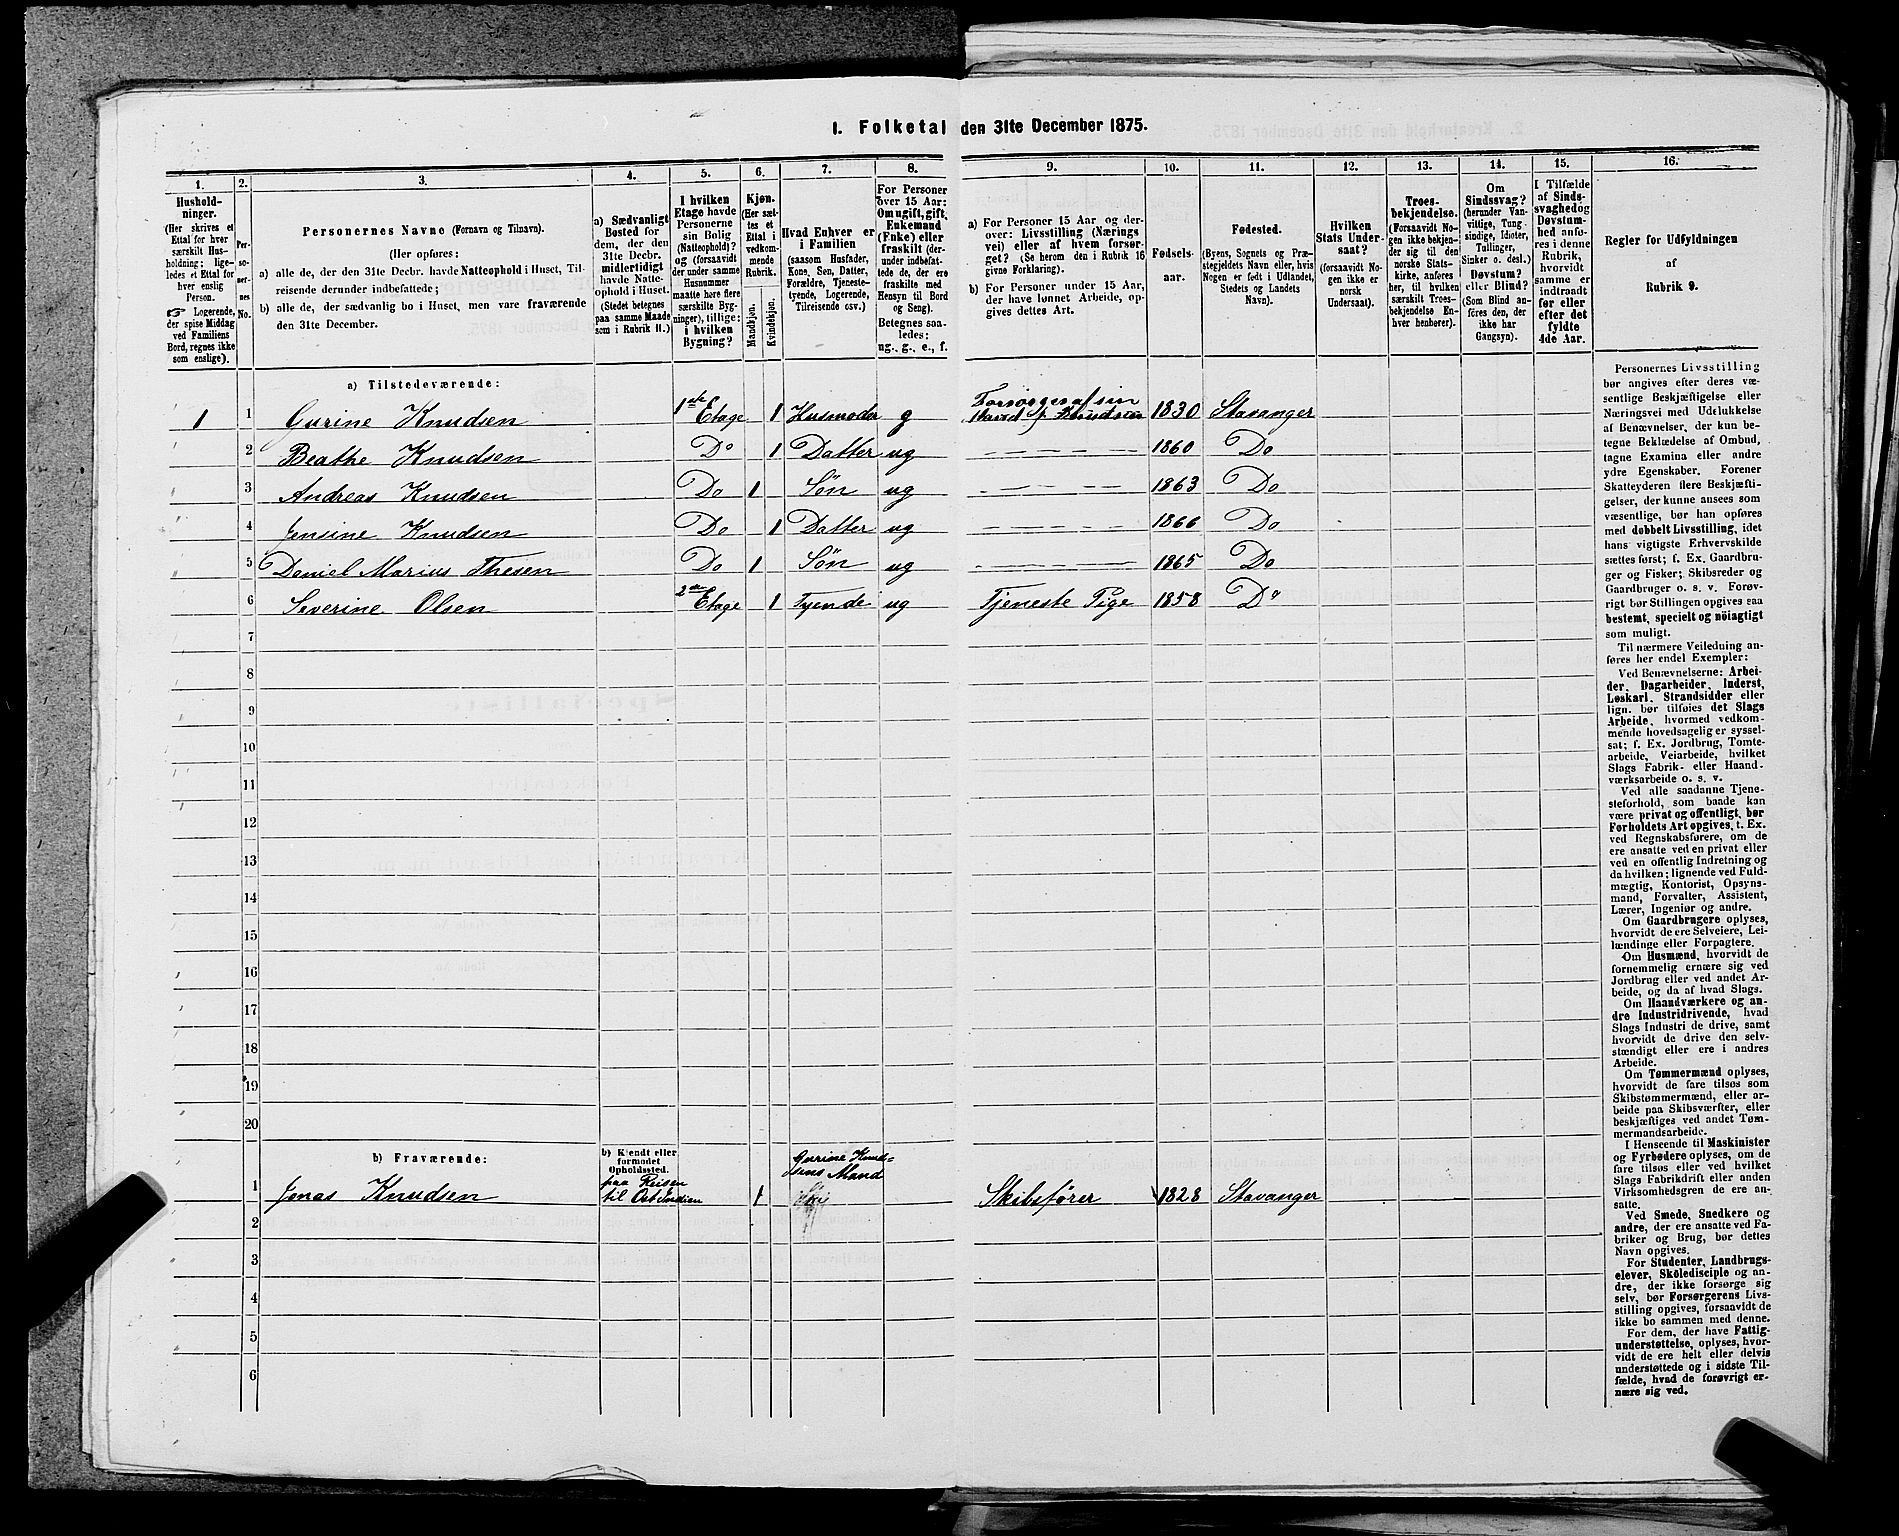 1. Folketal den 31te December 1875.
1.
Hushold-
ninger.
(Her skrives et
Ettal for hver
særskilt Hus-
holdning; lige-
ledes et Ettal for
hver enslig
Person.
☞ Logerende,
der spise Middag
ved Familiens
Bord, regnes ikke
som enslige).
2.
Per-
so-
ner-
nes
No.
3.
Personernes Navne (Fornavn og Tilnavn).
(Her opføres:
a) alle de, der den 31te Decbr. havde Natteophold i Huset, Til-
reisende derunder indbefattede;
b) alle de, der sædvanlig bo i Huset, men vare fraværende
den 31te December.
4.
a) Sædvanligt
Bosted for
dem, der den
31te Decbr.
midlertidigt
havde Natte-
ophold i Huset.
(Stedet betegnes
paa samme Maade
som i Rubrik 11.)
5.
I hvilken
Etage havde
Personerne
sin Bolig
(Natteophold)?
og (forsaavidt
der under samme
Husnummer
maatte høre flere
særskilte Byg-
ninger), tillige:
i hvilken
Bygning?
6.
Kjøn.
(Her sæt-
tes et
Ettal i
vedkom-
mende
Rubrik.
Mandkjøn.
Kvindekjøn.
7.
Hvad Enhver er
i Familien
(saasom Husfader,
Kone, Søn, Datter,
Forældre, Tjeneste-
tyende, Logerende,
Tilreisende osv.)
8.
For Personer
over 15 Aar:
Om ugift, gift,
Enkemand
(Enke) eller
fraskilt (der-
under indbefat-
tede de, der ere
fraskilte med
Hensyn til Bord
og Seng).
Betegnes saa-
ledes:
ug., g., e., f.
9.
a) For Personer 15 Aar og der-
over: Livsstilling (Nærings
vei) eller af hvem forsør-
get? (Se herom den i Rubrik 16
givne Forklaring).
b) For Personer under 15 Aar,
der have lønnet Arbeide, op-
gives dettes Art.
10.
Fødsels-
aar.
11.
Fødested.
(Byens, Sognets og Præ-
stegjeldets Navn eller, hvis
Nogen er født i Udlandet,
Stedets og Landets
Navn).
12.
Hvilken
Stats Under-
saat?
(forsaavidt No-
gen ikke er
norsk
Undersaat).
13.
Troes-
bekjendelse.
(Forsaavidt No-
gen ikke bekjen-
der sig til den
norske Stats-
kirke, anføres
her, til hvilken
særskilt Troes-
bekjendelse En-
hver henhører).
14.
Om
Sindssvag?
(herunder Van-
vittige, Tung-
sindige, Idioter,
Tullinger,
Sinker o. desl.)
Døvstum?
eller Blind?
(Som Blind an-
føres den, der
ikke har
Gangsyn).
15.
I Tilfælde
af Sinds-
svaghed og
Døvstum-
hed anfø-
res i denne
Rubrik,
hvorvidt
samme er
indtraadt
før eller
efter det
fyldte
4de Aar.
16.
Regler for Udfyldningen
af
Rubrik 9.
a) Tilstedeværende:
1 1 Gurine Knudsen 1ste Etage 1 Husmoder g Forsørges af sin Mand J. Knudsen 1830 Stavanger
2 Beathe Knudsen Do 1 Datter ug — — — — 1860 Do
3 Andreas Knudsen Do 1 Søn ug — — — — 1863 Do
4 Jensine Knudsen Do 1 Datter ug — — — — 1866 Do
5 Daniel Marius Thesen Do 1 Søn ug — — — — 1865 Do
6 Severine Olsen 2den Etage 1 Tyende ug Tjeneste Pige 1858 Do
7
8
9
10
11
12
13
14
15
16
17
18
19
20
b) Fraværende:
b) Kjendt eller
formodet
Opholdssted.
1 Jonas Knudsen paa Reisen til Ost Indien 1 Gurine Knudsens Mand Skibsfører 1828 Stavanger
2
3
4
5
6
Personernes Livsstilling
bør angives efter deres væ-
sentlige Beskjæftigelse eller
Næringsvei med Udelukkelse
af Benævnelser, der kun be-
tegne Beklædelse af Ombud,
tagne Examina eller andre
ydre Egenskaber. Forener
Skatteyderen flere Beskjæfti-
gelser, der kunne ansees som
væsentlige, bør han opføres
med dobbelt Livsstilling, idet
hans vigtigste Erhvervskilde
sættes først; f. Ex. Gaardbru-
ger og Fisker; Skibsreder og
Gaardbruger o. s. v. Forøv-
rigt bør Stillingen opgives saa
bestemt, specielt og nöiagtigt
som muligt.
Til nærmere Veiledning an-
føres her endel Exempler:
Ved Benævnelserne: Arbei-
der, Dagarbeider, Inderst,
Løskarl, Strandsidder eller
lign. bør tilføies det Slags
Arbeide, hvormed vedkom-
mende hovedsagelig er syssel-
sat; f. Ex. Jordbrug, Tomte-
arbeide, Veiarbeide, hvilket
Slags Fabrik- eller Haand-
værksarbeide o. s. v.
Ved alle saadanne Tjene-
steforhold, som baade kan
være privat og offentligt, bør
Forholdets Art opgives, t. Ex.
ved Regnskabsførere, om de
ere ansatte ved en privat eller
ved en offentlig Indretning og
da hvilken; lignende ved Fuld-
mægtig, Kontorist, Opsyns-
mand, Forvalter, Assistent,
Lærer, Ingeniør og andre.
Om Gaardbrugere oplyses,
hvorvidt de ere Selveiere, Lei-
lændinge eller Forpagtere.
Om Husmænd, hvorvidt de
fornemmelig ernære sig ved
Jordbrug eller ved andet Ar-
beide, og da af hvad Slags.
Om Haandværkere og an-
dre Industridrivende, hvad
Slags Industri de drive, samt
hvorvidt de drive den selv-
stændigt eller ere i andres
Arbeide.
Om Tømmermænd oplyses,
hvorvidt de fare tilsøs som
Skibstømmermænd, eller ar-
beide paa Skibsværfter, eller
beskjæftiges ved andet Tøm-
mermandsarbeide.
I Henseende til Maskinister
og Fyrbødere oplyses, om de
fare tilsøs eller ved hvilket
Slags Fabrikdrift eller anden
Virksomhedsgren de ere an-
satte.
Ved Smede, Snedkere og
andre, der ere ansatte ved Fa-
briker og Brug, bør dettes
Navn opgives.
For Studenter, Landbrugs-
elever, Skoledisciple og an-
dre, der ikke forsørge sig
selv, bør Forsørgerens Livs-
stilling opgives, forsaavidt de
ikke bo sammen med denne.
For dem, der have Fattig-
understøttelse, oplyses, hvor-
vidt de ere helt eller delvis
understøttede og i sidste Til-
fælde, hvad de forøvrigt er-
nære sig ved.